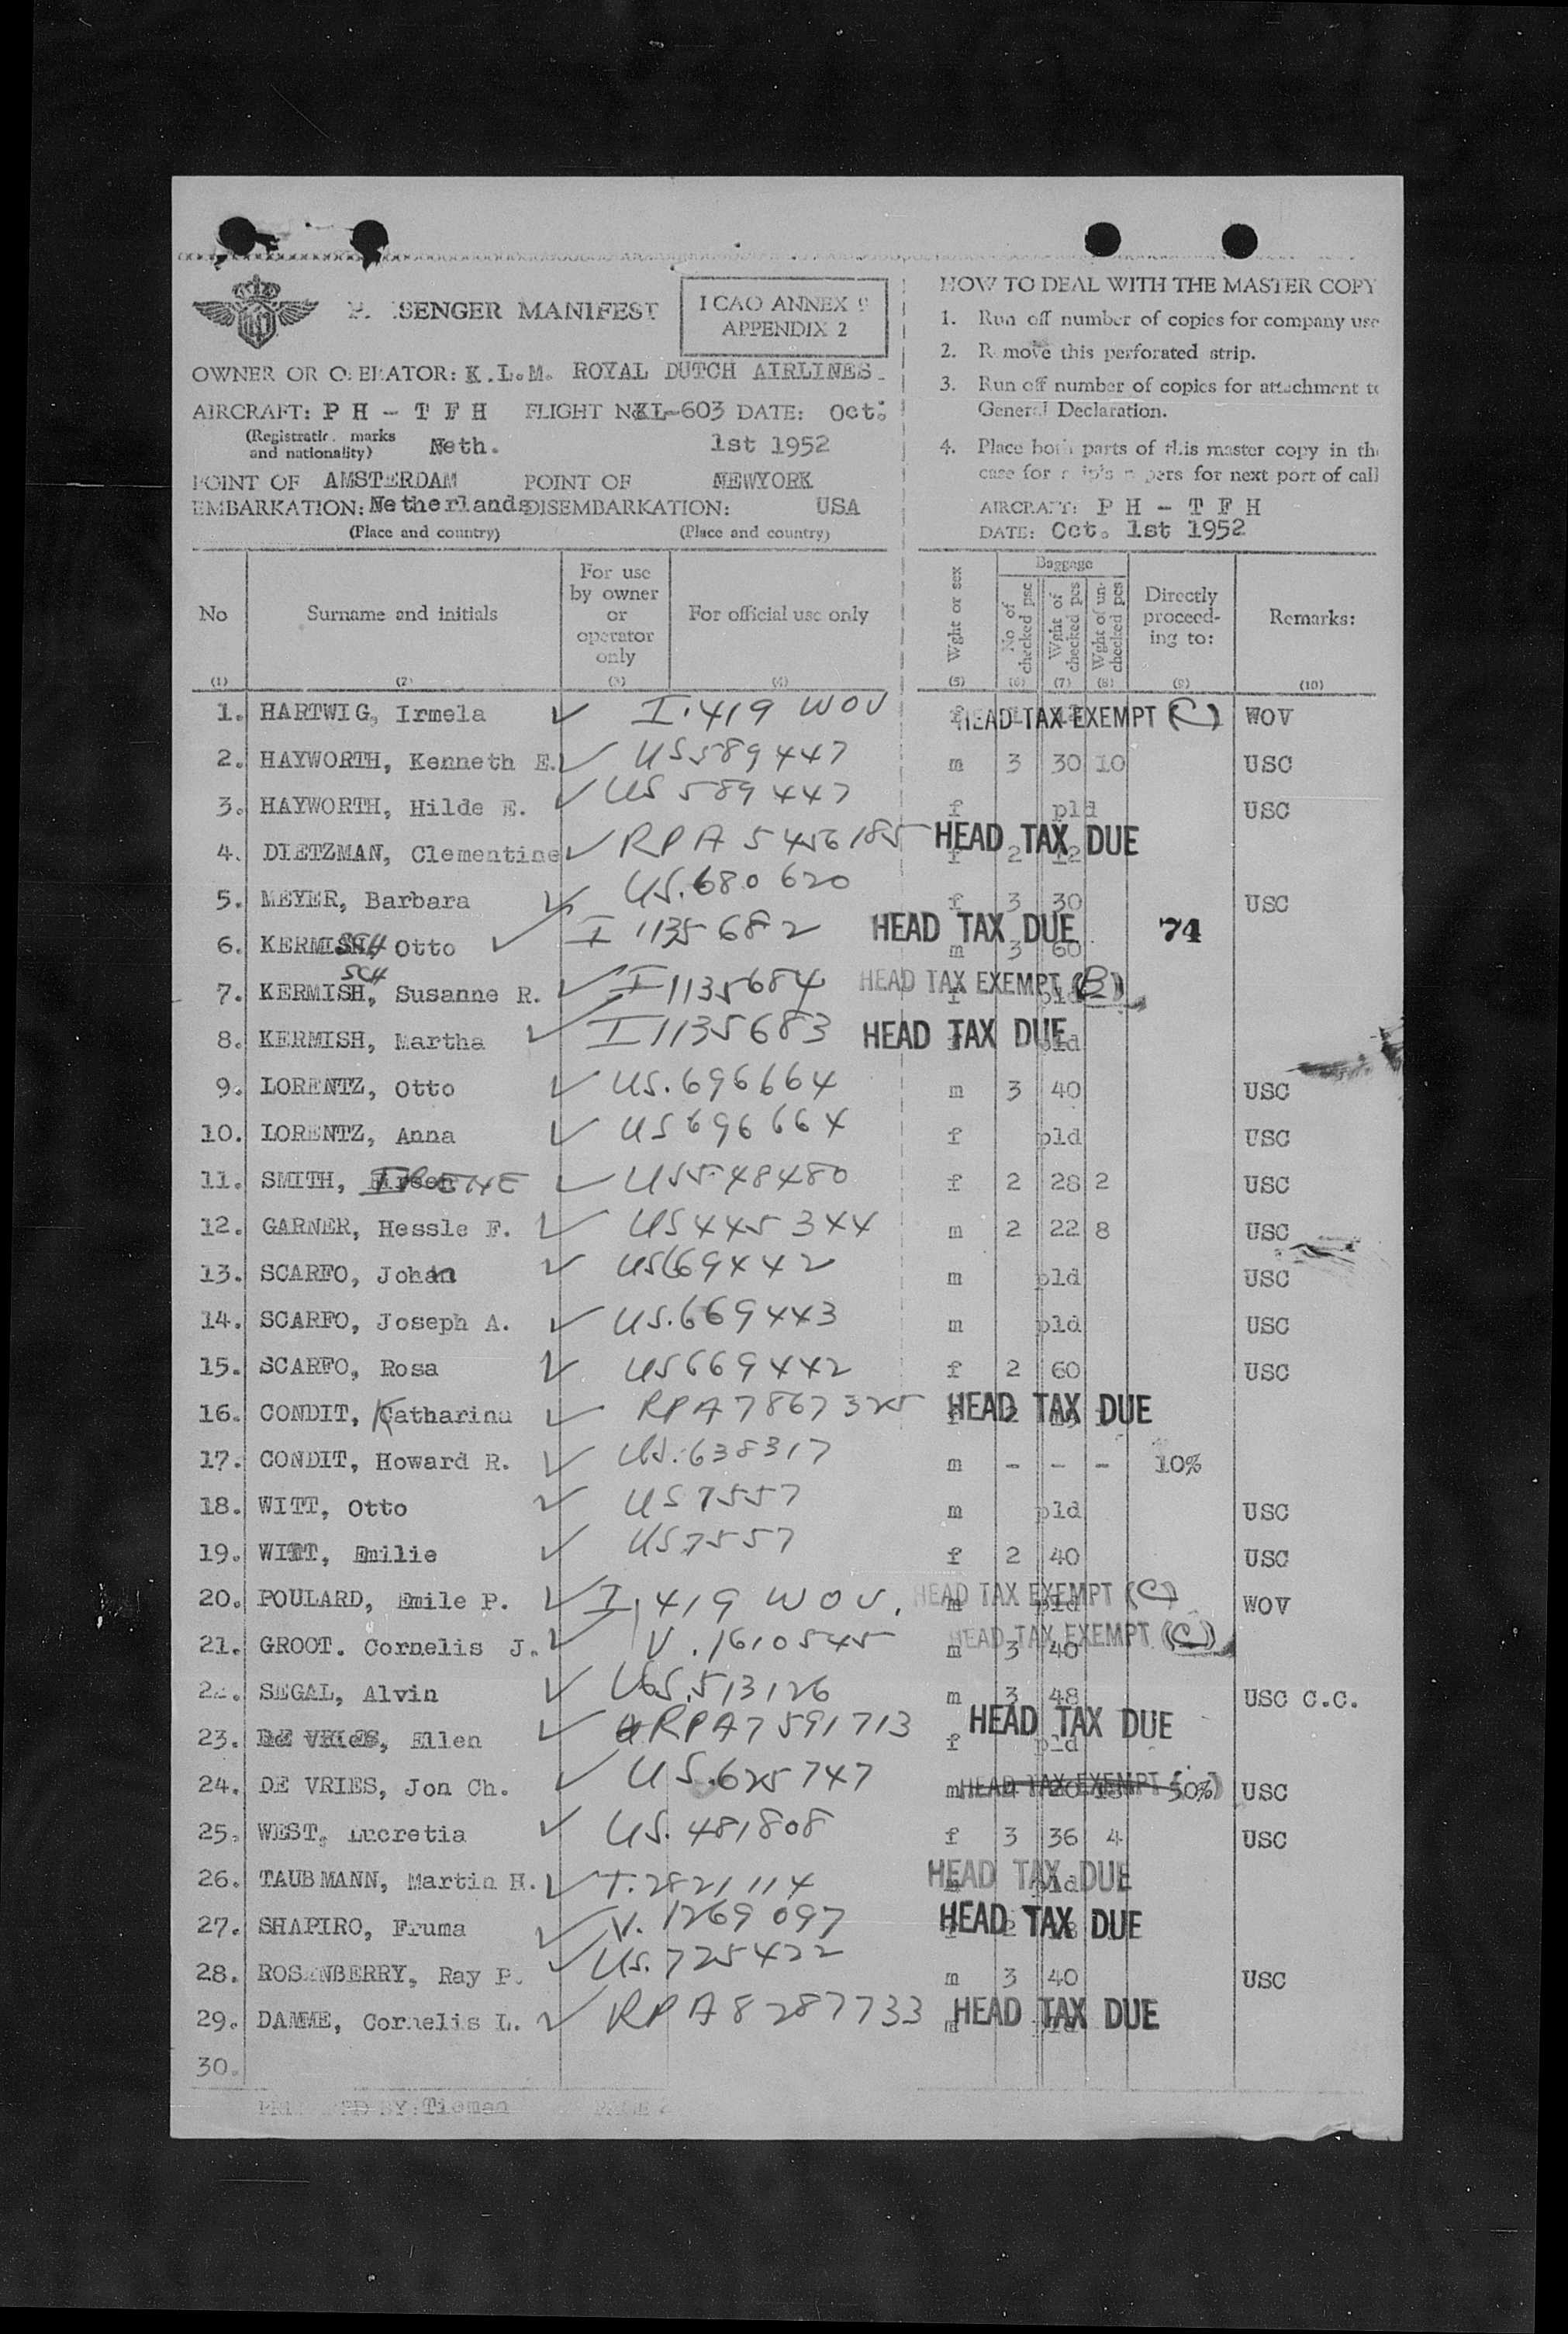 PASSENGER MANIFEST
ICAO ANNEX 9
APPENDIX 2
OWNER OR OPERATOR: K.L.M. ROYAL DUTCH AIRLINES.
AIRCRAFT: P H - T F H FLIGHT No KL-603 DATE: Oct.
(Registration marks and nationality) Neth. 1st 1952
POINT OF AMSTERDAM POINT OF NEWYORK
EMBARKATION: Netherlands DISEMBARKATION: USA
(Place and country) (Place and country)
HOW TO DEAL WITH THE MASTER COPY
1. Run off number of copies for company use
2. Remove this perforated strip.
3. Run off number of copies for attachment to
General Declaration.
4. Place both parts of this master copy in the
case for ship's papers for next port of call
AIRCRAFT: P H - T F H
DATE: Oct. 1st 1952
No Surname and initials For use by owner or operator only For official use only Wght or sex Baggage No of checked psc Wght of checked pcs Wght of unchecked pcs Directly proceeding to: Remarks:
(1) (2) (3) (4) (5) (6) (7) (8) (9) (10)
1. HARTWIG, Irmela ✓ I.419 WOV f HEAD TAX EXEMPT (C) WOV
2. HAYWORTH, Kenneth E. ✓ US589447 m 3 30 10 USC
3. HAYWORTH, Hilde E. ✓ US 589447 f pld USC
4. DIETZMAN, Clementine ✓ RPA 5456185 f 2 12 HEAD TAX DUE
5. MEYER, Barbara ✓ US.680620 f 3 30 USC
6. KERMISH, SCH Otto ✓ I 1135682 HEAD TAX DUE m 3 60 74
7. KERMISH, SCH Susanne R. ✓ I1135684 HEAD TAX EXEMPT (B) f pld
8. KERMISH, Martha ✓ I1135683 HEAD TAX DUE f pld
9. LORENTZ, Otto ✓ US.696664 m 3 40 USC
10. LORENTZ, Anna ✓ US696664 f pld USC
11. SMITH, IRENE ✓ US548480 f 2 28 2 USC
12. GARNER, Hessle F. ✓ US445344 m 2 22 8 USC
13. SCARFO, Johan ✓ US669442 m pld USC
14. SCARFO, Joseph A. ✓ US.669443 m pld USC
15. SCARFO, Rosa ✓ US669442 f 2 60 USC
16. CONDIT, Katharina ✓ RPA7867325 f 2 HEAD TAX DUE
17. CONDIT, Howard R. ✓ US.638317 m - - - 10%
18. WITT, Otto ✓ US7557 m pld USC
19. WITT, Emilie ✓ US7557 f 2 40 USC
20. POULARD, Emile P. ✓ I.419 WOV. HEAD TAX EXEMPT (C) m pld WOV
21. GROOT. Cornelis J. ✓ V.1610545 HEAD TAX EXEMPT (C) m 3 40
22. SEGAL, Alvin ✓ US.513126 m 3 48 USC C.C.
23. DE VRIES, Ellen ✓ RPA7591713 f pld HEAD TAX DUE
24. DE VRIES, Jon Ch. ✓ US.625747 m HEAD TAX EXEMPT 50% USC
25. WEST, Lucretia ✓ US.481808 f 3 36 4 USC
26. TAUBMANN, Martin H. ✓ I.2821114 HEAD TAX DUE m pld
27. SHAPIRO, Fruma ✓ V.1269097 HEAD TAX DUE f 2
28. ROSENBERRY, Ray P. ✓ US.725422 m 3 40 USC
29. DAMME, Cornelis L. ✓ RPA8287733 HEAD TAX DUE m pld
30.
PRINTED BY: Tieman PAGE